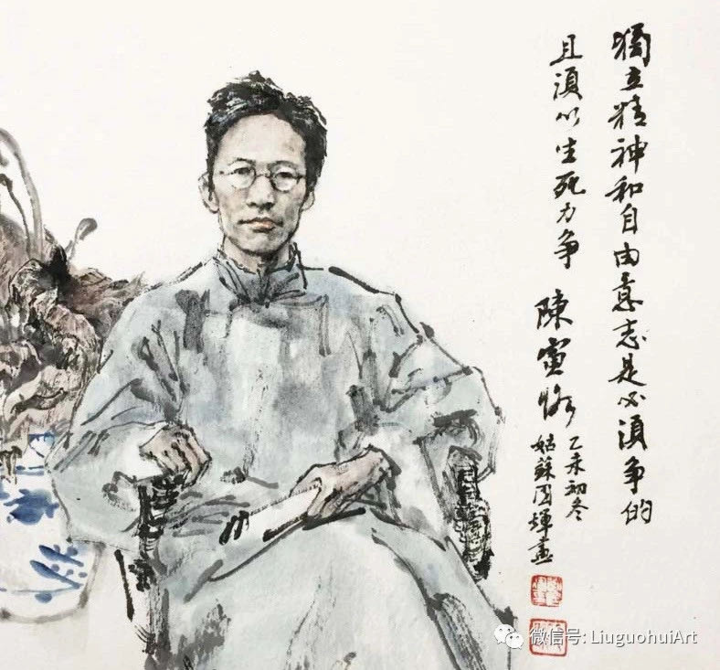 獨立精神和自由意志是必須争的
且須以生死力争 陳寅恪
乙未初冬
姑蘇國輝画
微信号: LiuguohuiArt